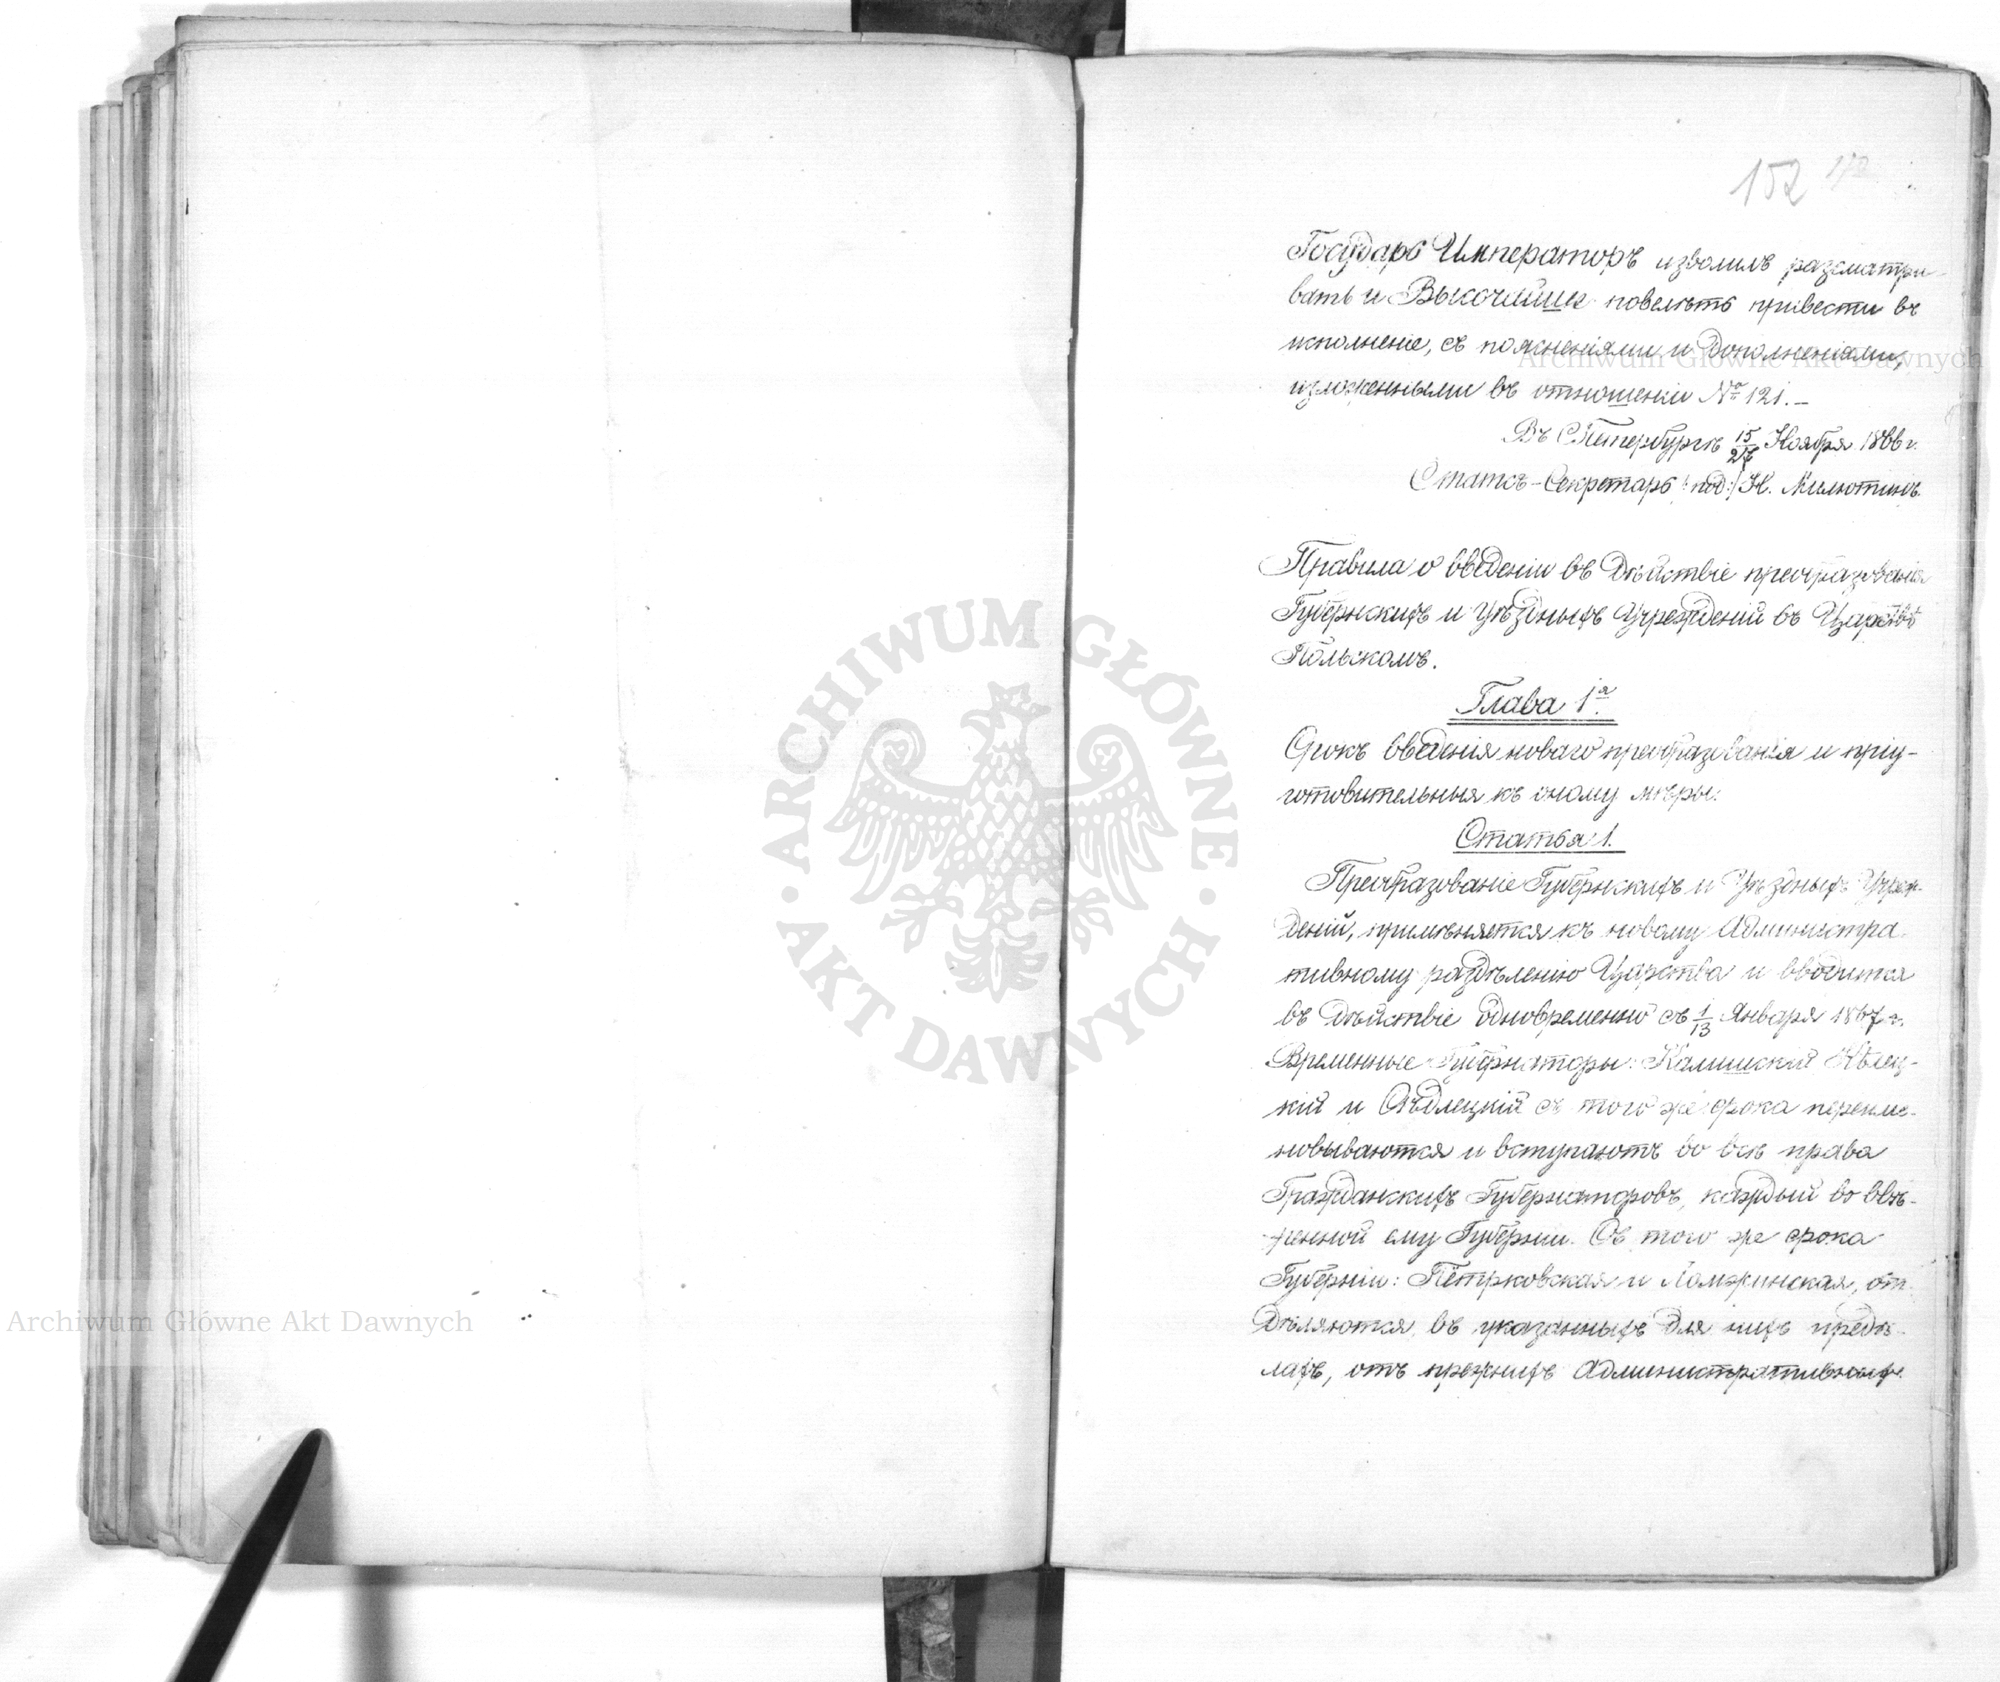 152
Государь Императоръ изволилъ разсматри-
вать и Высочайше повелѣть привести въ
исполненіе, съ поясненіями и дополненіями,
изложенными въ отношеніи № 121.-
Въ С.Петербургѣ 15/27 Ноября 1866 г.
Статсъ-Секретарь /:под:/ Н. Милютинъ.
Правила о введеніи въ дѣйствіе преобразованія
Губернскихъ и Уѣздныхъ Учрежденій въ Царствѣ
Польскомъ.
Глава 1я.
Срокъ введенія новаго преобразованія и пріу-
готовительныя къ оному мѣры.
Статья 1.
Преобразованіе Губернскихъ и Уѣздныхъ Учреж-
деній, примѣняется къ новому Администра-
тивному раздѣленію Царства и вводится
въ дѣйствіе одновременно съ 1/13 Января 1867 г.
Временные Губернаторы: Калишскій Кѣлец-
кій и Сѣдлецкій съ того же срока переиме-
новываются и вступаютъ во всѣ права
Гражданскихъ Губернаторовъ, каждый во ввѣ-
ренной ему Губерніи. Съ того же срока
Губерніи: Петрковская и Ломжинская, от-
дѣляются, въ указанныхъ для нихъ предѣ-
лахъ, отъ прежнихъ Административныхъ
Archiwum Główne Akt Dawnych
Archiwum Główne Akt Dawnych
ARCHIWUM GŁÓWNE AKT DAWNYCH